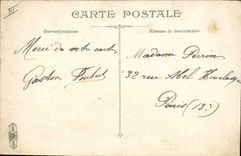 CARTE POSTALE
Correspondance
Adresse du destinataire
Merci de votre carte
Gaston
Madame Perrin
32 rue Abel Hovelacque
Paris (13)